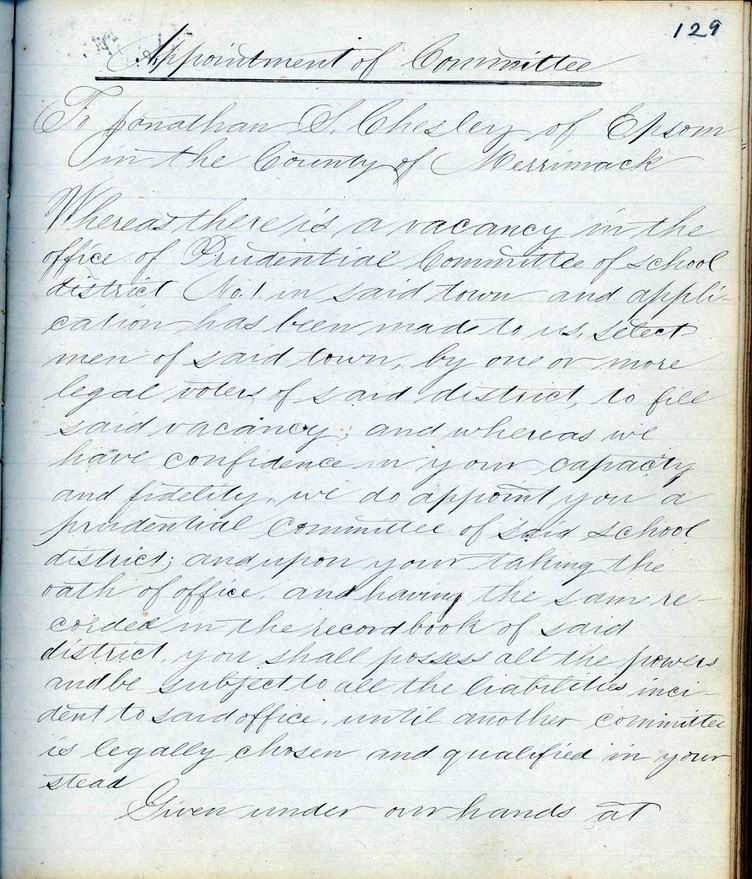 129
Appointment of Committee
To Jonathan S. Chesley of Epsom
in the County of Merrimack
Whereas there is a vacancy in the
office of Prudential Committee of school
district No. 1 in said town and appli-
cation has been made to us, select
men of said town, by one or more
legal voters of said district, to fill
said vacancy; and whereas we
have confidence in your capacity
and fidelity, we do appoint you a
prudential committee of said school
district; and upon your taking the
oath of office, and having the same re-
corded in the record book of said
district, you shall possess all the powers
and be subject to all the liabilities inci-
dent to said office, until another committee
is legally chosen and qualified in your
stead
Given under our hands at